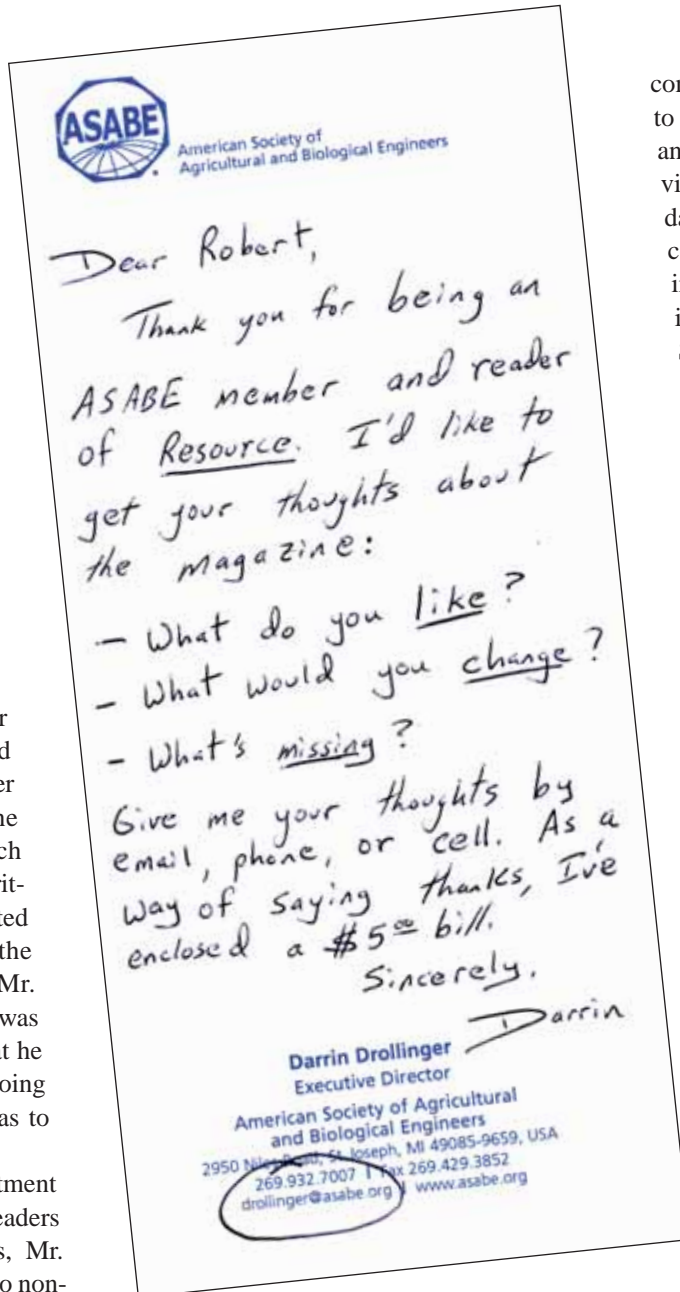 ASABE
American Society of
Agricultural and Biological Engineers
Dear Robert,
Thank you for being an
ASABE member and reader
of Resource. I'd like to
get your thoughts about
the magazine:
- What do you like?
- What would you change?
- What's missing?
Give me your thoughts by
email, phone, or cell. As a
way of saying thanks, I've
enclosed a $5.00 bill.
Sincerely,
Darrin
Darrin Drollinger
Executive Director
American Society of Agricultural
and Biological Engineers
2950 Niles Road, St. Joseph, MI 49085-9659, USA
269.932.7007 | Fax 269.429.3852
drollinger@asabe.org | www.asabe.org
the
Mr.
was
at he
oing
as to
tment
eaders
s, Mr.
o non-
to